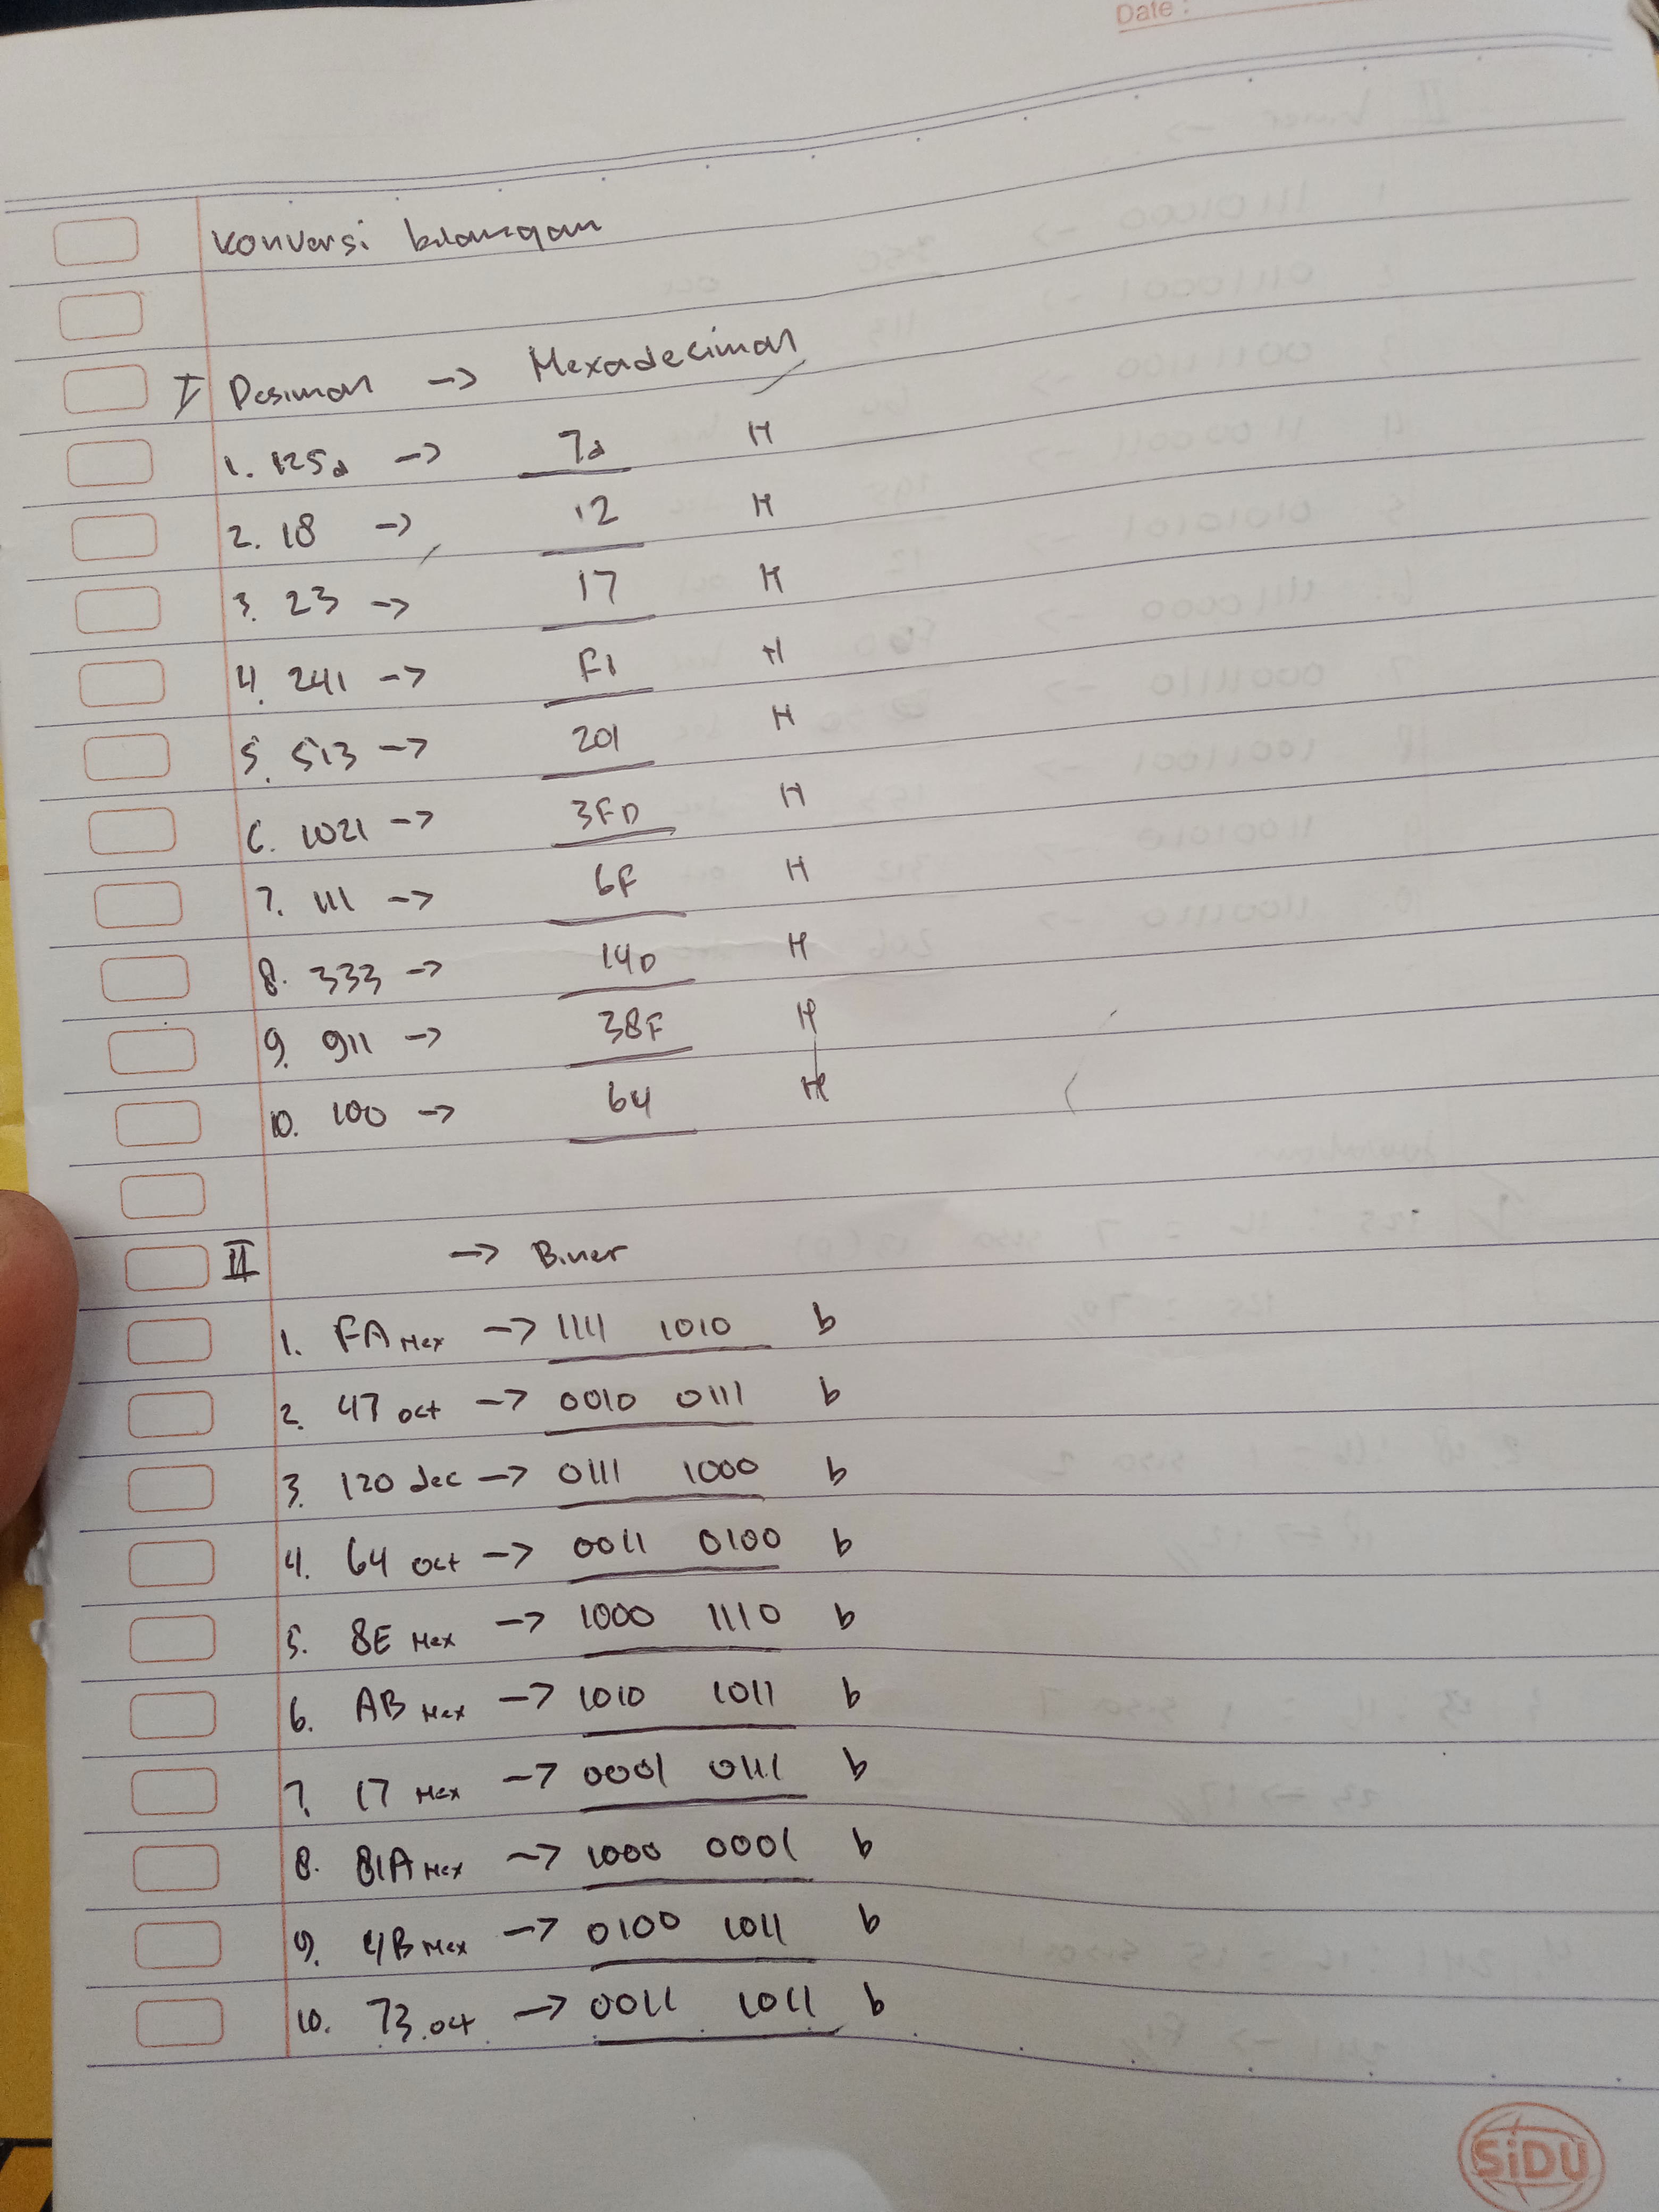 Date :
Konversi bilangan
I Desimal -> Hexadecimal
1. 125d -> 7d H
2. 18 -> 12 H
3. 23 -> 17 H
4. 241 -> F1 H
5. 513 -> 201 H
6. 1021 -> 3FD H
7. 111 -> 6F H
8. 333 -> 14D H
9. 911 -> 38F H
10. 100 -> 64 H
II -> Biner
1. FA Hex -> 1111 1010 b
2. 47 oct -> 0010 0111 b
3. 120 dec -> 0111 1000 b
4. 64 oct -> 0011 0100 b
5. 8E Hex -> 1000 1110 b
6. AB Hex -> 1010 1011 b
7. 17 Hex -> 0001 0111 b
8. 81A Hex -> 1000 0001 b
9. 4B Hex -> 0100 1011 b
10. 73 oct -> 0011 1011 b
SiDU